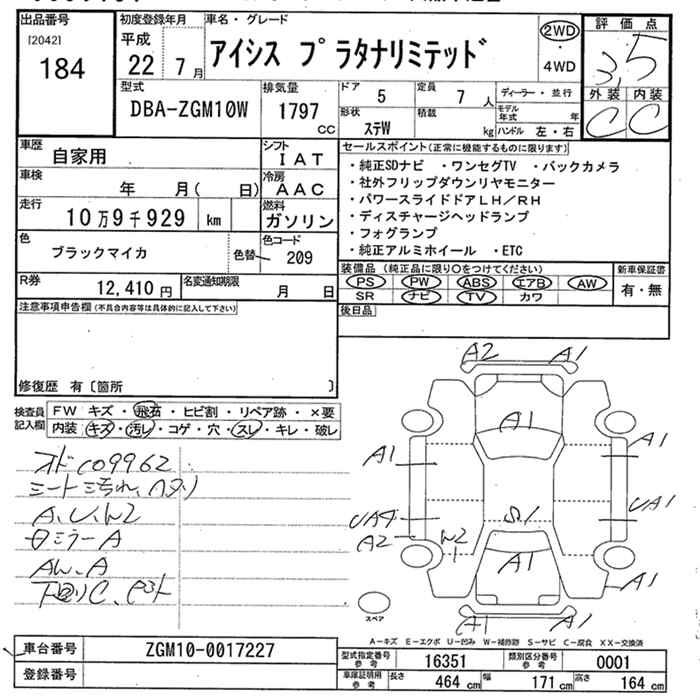 出品番号
[2042]
184
初度登録年月
平成
22 7 月
車名・グレード
アイシス プラタナリミテッド
2WD
・
4WD
評価点
3.5
外装 内装
C C
型式
DBA-ZGM10W
排気量
1797
CC
ドア 5
定員 7 人
ディーラー・並行
形状 ステW
積載 kg
モデル年式 年
ハンドル 左・右
車歴
自家用
シフト
IAT
車検
年 月( 日)
冷房
AAC
走行
10万9千929 km
燃料
ガソリン
色
ブラックマイカ
色替
色コード
209
R券
12,410 円
名変通知期限
月 日
セールスポイント(正常に機能するものに限ります)
・純正SDナビ ・ワンセグTV ・バックカメラ
・社外フリップダウンリヤモニター
・パワースライドドアLH/RH
・ディスチャージヘッドランプ
・フォグランプ
・純正アルミホイール ・ETC
装備品(純正品に限り○をつけてください)
PS PW ABS エアB AW
SR ナビ TV カワ
新車保証書
有・無
後日品
注意事項申告欄(不具合内容等は具体的に記入して下さい)
修復歴 有〔箇所 〕
検査員
記入欄
FW キズ・飛石・ヒビ割・リペア跡・×要
内装 キズ・汚レ・コゲ・穴・スレ・キレ・破レ
シート汚れ、ヘタリ
A、U、W2
ミラーA
AW、A
下回りC、
A2 A1
A1
A1 A1
UA1
A2
S1
W2
A1
A1
A1 A1
スペア
A-キズ E-エクボ U-凹み W-補修跡 S-サビ C-腐食 XX-交換済
車台番号
ZGM10-0017227
登録番号
型式指定番号
参考
16351
類別区分番号
参考
0001
車庫証明用
参考
長さ 464 cm
幅 171 cm
高さ 164 cm